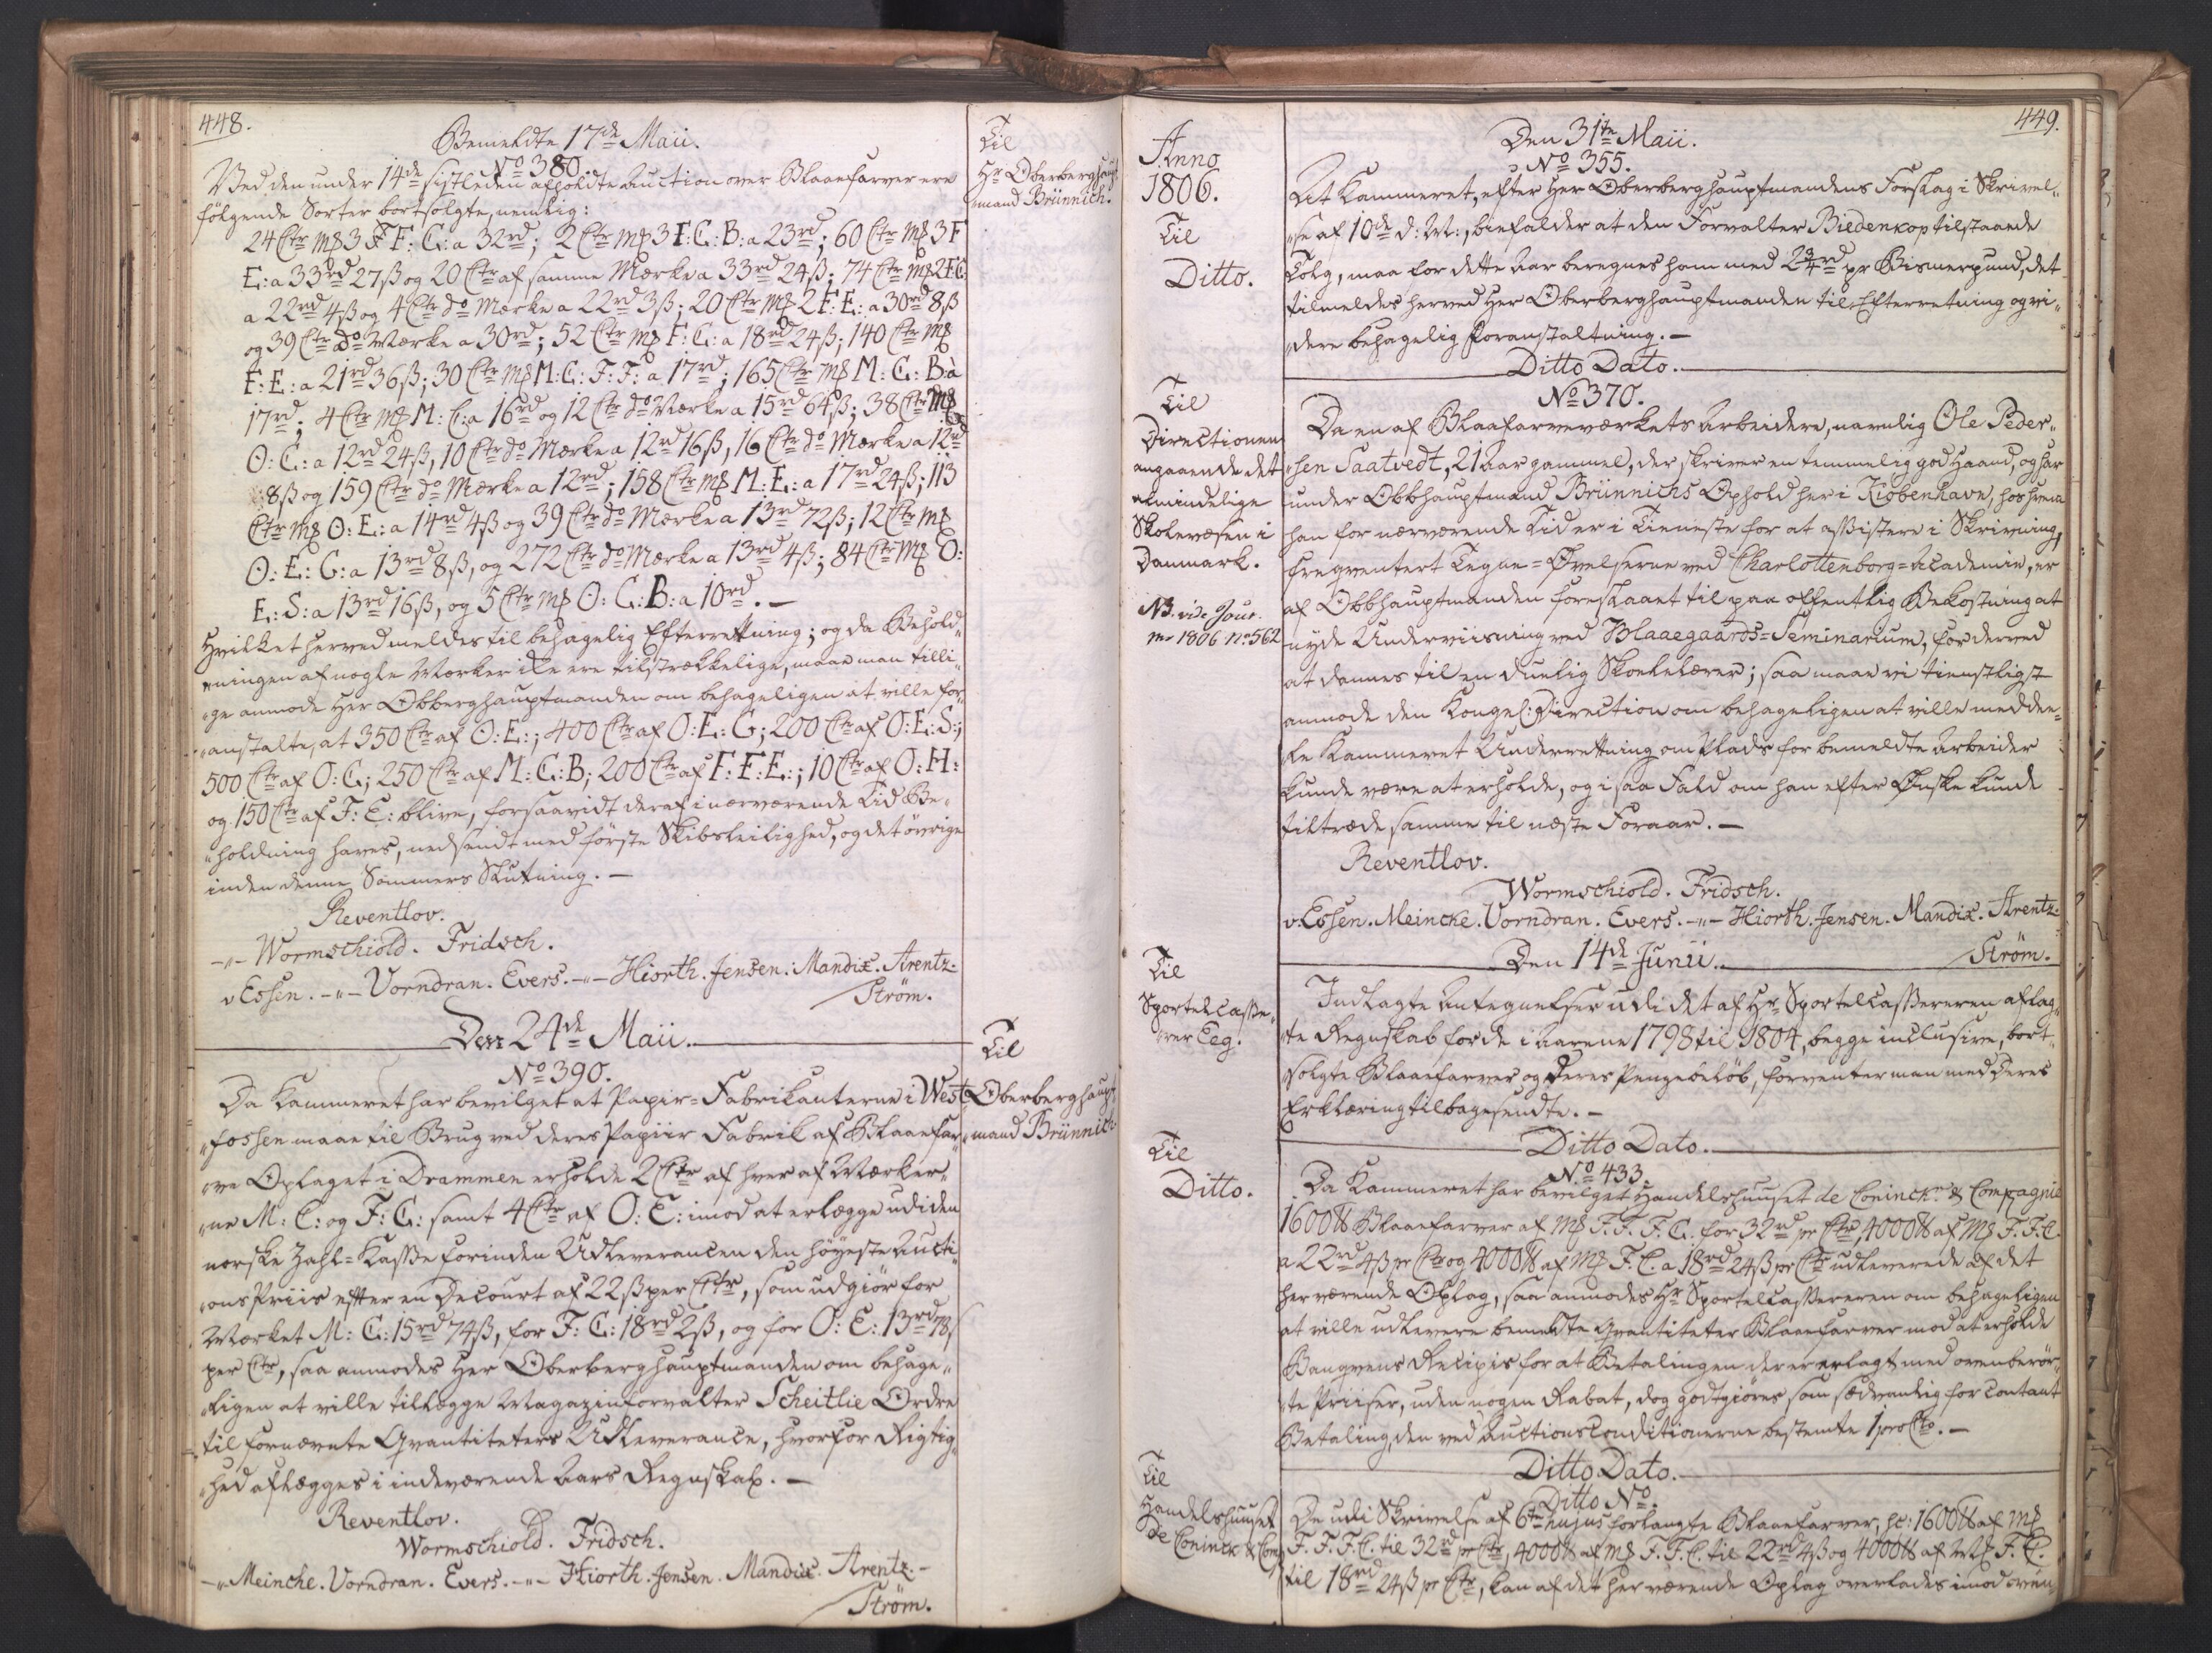 448.
Bemeldte 17de Maii.
No 380.
Ved den under 14de sistleden afholdte Auction over Blaaefarver ere
følgende Sorter bortsolgte, nemlig:
24 Ctr Mk 3 F F: C: a 32rd; 2 Ctr Mk 3 F. C.: B: a 23rd; 60 Ctr Mk 3 F
E: a 33rd 27ß og 20 Ctr af samme Mærke a 33rd 24ß; 74 Ctr Mk 2 F C:
a 22rd 4ß og 4 Ctr do Mærke a 22rd 3ß; 20 Ctr Mk 2 F: E: a 30rd 8ß
og 39 Ctr do Mærke a 30rd; 52 Ctr Mk F: C: a 18rd 24ß; 140 Ctr Mk
F: E: a 21rd 36ß; 30 Ctr Mk M: C: F: F: a 17rd; 165 Ctr Mk M: C: B: à
17rd; 4 Ctr Mk M: C: a 16rd og 12 Ctr do Mærke a 15rd 64ß; 38 Ctr Mk
O: C: a 12rd 24ß, 10 Ctr do Mærke a 12rd 16ß, 16 Ctr do Mærke a 12rd
8ß og 159 Ctr do Mærke a 12rd; 158 Ctr Mk M: E: a 17rd 24ß; 113
Ctr Mk O: E: a 14rd 4ß og 39 Ctr do Mærke a 13rd 72ß; 12 Ctr Mk
O: E: G: a 13rd 8ß, og 272 Ctr do Mærke a 13rd 4ß; 84 Ctr Mk O:
E: S: a 13rd 16ß, og 5 Ctr Mk O: C: B: a 10rd. —
Hvilket herved meldes til behagelig Efterretning; og da Behold„
„ningen af nogle Mærker ikke ere tilstrækkelige, maae man tilli„
„ge anmode Her Obberghauptmanden om behageligen at ville for„
„anstalte, at 350 Ctr af O: E:; 400 Ctr af O: E: G; 200 Ctr af O: E: S:;
500 Ctr af O: C; 250 Ctr af M: C: B; 200 Ctr af F: F: E:; 10 Ctr af O: H:
og 150 Ctr af F: C: blive, forsaavidt deraf i nærværende Tid Be„
„holdning haves, nedsendt med første Skibsleilighed, og det øvrige
inden denne Sommers Slutning. —
Reventlov.
-"- Wormschiold. Fridsch.
v Essen. -"- Vorndran. Evers. -"- Hiorth. Jensen. Mandix. Arentz.
Strøm.
Til
Hr Oberberghaupt
„mand Brünnich.
Den 24de Maii.
No 390.
Da Kammeret har bevilget at Papir-Fabrikanterne i West„
„fossen maae til Brug ved deres Papiir Fabrik af Blaaefar„
„ve Oplaget i Drammen erholde 2 Ctr af hver af Mærker„
„ne M: C: og F: C: samt 4 Ctr af O: E: imod at erlægge udi den
norske Zahl-Kasse forinden Udleverancen den høyeste Aucti„
„ons Priis efter en Decourt af 22ß per Ctr, som udgiør for
Mærket M: C: 15rd 74ß, for F: C: 18rd 2ß, og for O: E: 13rd 78ß
per Ctr, saa anmodes Her Oberberghauptmanden om behage„
„ligen at ville tillægge Magazinforvalter Scheitlie Ordre
til fornævnte Qvantiteters Udleverance, hvorfor Rigtig„
„hed aflægges i indeværende Aars Regnskab. —
Reventlov.
Wormschiold. Fridsch.
-"- Meincke. Vorndran. Evers. -"- Hiorth. Jensen. Mandix. Arentz. -
Strøm.
Til
Oberberghaupt
„mand Brünnich.
449.
Anno
1806.
Til
Ditto.
Den 31te Maii.
No 355.
At Kammeret, efter Her Oberberghauptmandens Forslag i Skrivel„
„se af 10de d: M:, bifalder at den Forvalter Biedenkop tilstaaede
Talg, maa for dette Aar beregnes ham med 2 3/4rd pr Bismerpund, det
tilmeldes herved Her Oberberghauptmanden til Efterretning og vi„
„dere behagelig Foranstaltning. —
Ditto Dato.
No 370.
Til
Directionen
angaaende det
almindelige
Skolevæsen i
Danmark.
NB. vide Jour.
1806 no 562
Da en af Blaafarveværkets Arbeidere, navnlig Ole Peder„
„sen Saatvedt, 21 Aar gammel, der skriver en temmelig god Haand, og har
under Obbhauptmand Brünnichs Ophold her i Kiøbenhavn, hos hvem
han for nærværende Tid er i Tieneste for at assistere i Skrivning,
freqventert Tegne-Øvelserne ved Charlottenborg-Academie, er
af Obbhauptmanden foreslaaet til paa offentlig Bekostning at
nyde Underviisning ved Blaaegaards-Seminarium, for derved
at dannes til en duelig Skoelelærer; saa maae vi tienstligst
anmode den Kongel: Direction om behageligen at ville meddee„
„le Kammeret Underretning om Plads for bemeldte Arbeider
kunde være at erholde, og i saa Fald om han efter Ønske kunde
tiltræde samme til næste Foraar. —
Reventlov.
Wormschiold. Fridsch.
v. Essen. Meincke. Vorndran. Evers. -"- Hiorth. Jensen. Mandix. Arentz.
Strøm.
Den 14de Junii.
Til
Sportelcasse„
„rer Eeg.
Indlagte Antegnelser udi det af Hr Sportelcassereren aflag„
„te Regnskab for de i Aarene 1798 til 1804, begge inclusive, bort„
„solgte Blaaefarver og deres Pengebeløb, forventer man med Deres
Erklæring tilbagesendte. —
Ditto Dato.
No 433.
Til
Ditto.
Da Kammeret har bevilget Handelshuuset de Coninck & Compagnie
1600 ℔ Blaaefarver af Mk F. F. F. C. for 32rd pr Ctr, 4000 ℔ af Mk F. F. C.
a 22rd 4ß pr Ctr og 4000 ℔ af Mk F. C. a 18rd 24ß pr Ctr udleverede af det
herværende Oplag, saa anmodes Hr Sportelcassereren om behageligen
at ville udlevere bemeldte Qvantiteter Blaaefarver mod at erholde
Banqvens Recipis for at Betalingen derer erlagt med ovenberør„
„te Priiser, uden nogen Rabat, dog godtgiøres som sædvanlig for contant
Betaling, den ved Auctionsconditionerne bestemte 1 pro Cto. —
Ditto Dato.
Ditto No.
Til
Handelshuuset
de Coninck & Comp
De udi Skrivelse af 6te hujus forlangte Blaaefarver, sc: 1600 ℔ af Mk
F. F. F. C. til 32rd pr Ctr, 4000 ℔ af Mk F. F. C. til 22rd 4ß og 4000 ℔ af Mk F. C.
til 18rd 24ß pr Ctr, kan af det herværende Oplag overlades imod oven„